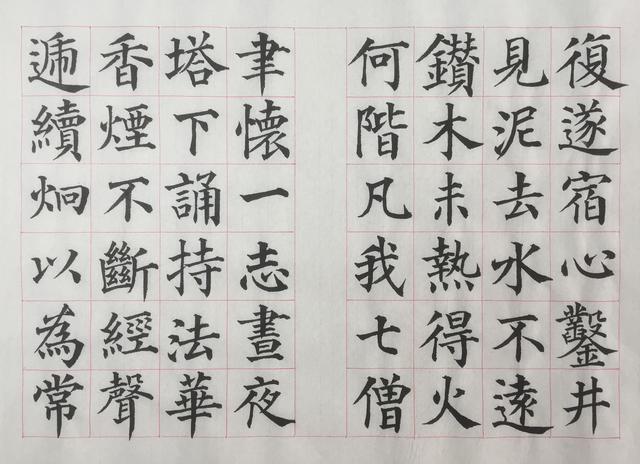 復遂宿心鑿井
見泥去水不遠
鑽木未熱得火
何階凡我七僧
聿懷一志晝夜
塔下誦持法華
香煙不斷經聲
遞續炯以為常